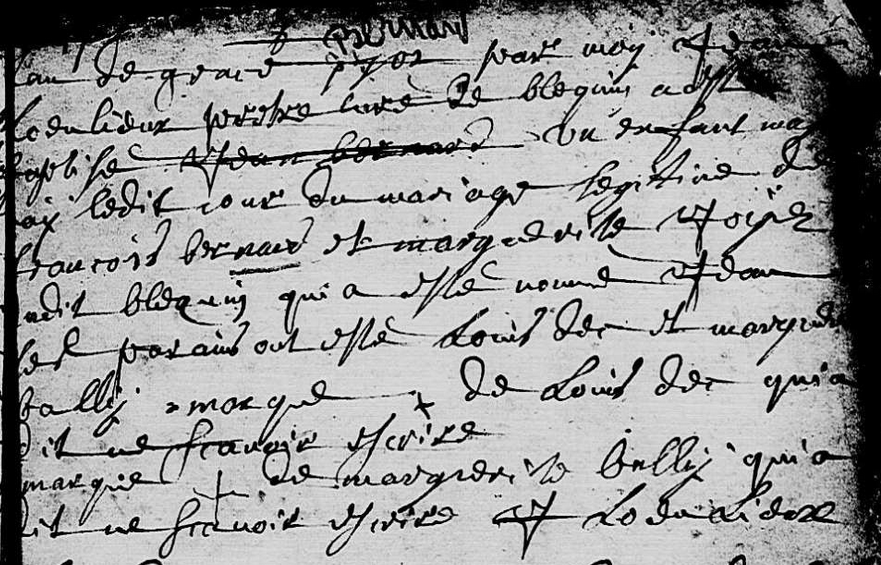 bernard
lan de grace par moy Jean
lodulieux prestre curé de blequin a esté
baptisé Jean bernard un enfant
ledit jour du mariage legitime de
francois bernard et marguerite
audit blequin qui a esté nommé Jean
les parains ont esté Louis dec et marguerite
bally marque + de Louis dec qui a
dit ne scavoir escrire
marque + de marguerite bally qui a
dit ne scavoir escrire J